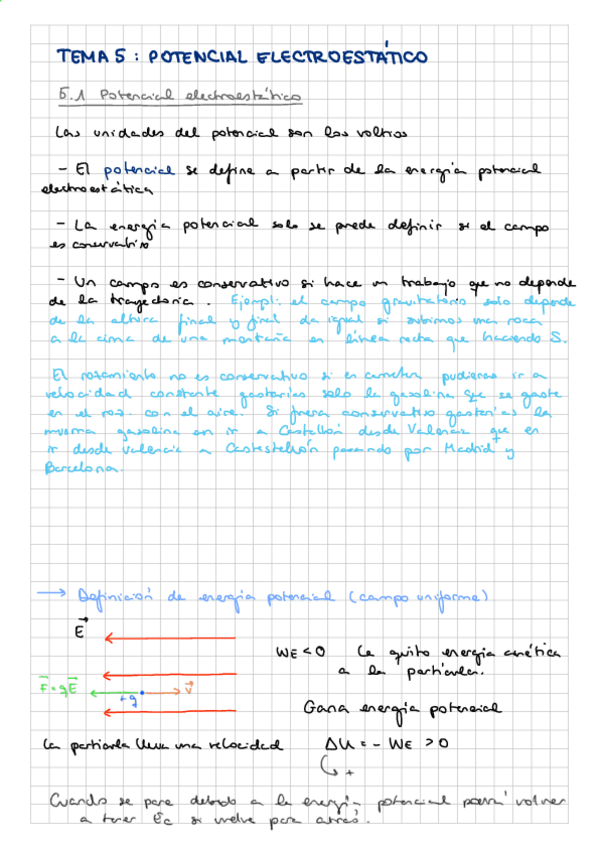 TEMA 5 : POTENCIAL ELECTROESTÁTICO
5.1 Potencial electroestático
Las unidades del potencial son los voltios
- El potencial se define a partir de la energía potencial
electroestática
- La energía potencial solo se puede definir si el campo
es conservativo
- Un campo es conservativo si hace un trabajo que no depende
de la trayectoria. Ejempl: el campo gravitatorio solo depende
de la altura final y final da igual si subimos una roca
a la cima de una montaña en línea recta que haciendo S.
El rozamiento no es conservativo si en carretera pudieras ir a
velocidad constante gastarías solo la gasolina que se gaste
en el roz. con el aire. Si fuera conservativo gastarías la
misma gasolina en ir a Castellón desde Valencia que en
ir desde Valencia a Castestellón pasando por Madrid y
Barcelona.
→ Definición de energía potencial (campo uniforme)
E⃗
WE < 0 Le quito energía cinética
a la partícula.
F⃗ = qE⃗
+q
v⃗
Gana energía potencial
La partícula lleva una velocidad ΔU = - WE > 0
+
Cuando se pare debido a la energía potencial podrá volver
a tener Ec si vuelve para atrás.